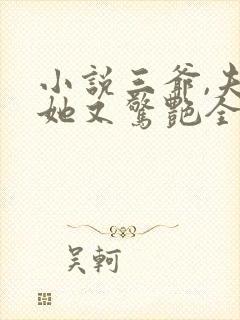 小說三爺,夫
她又驚艷全
吴軻